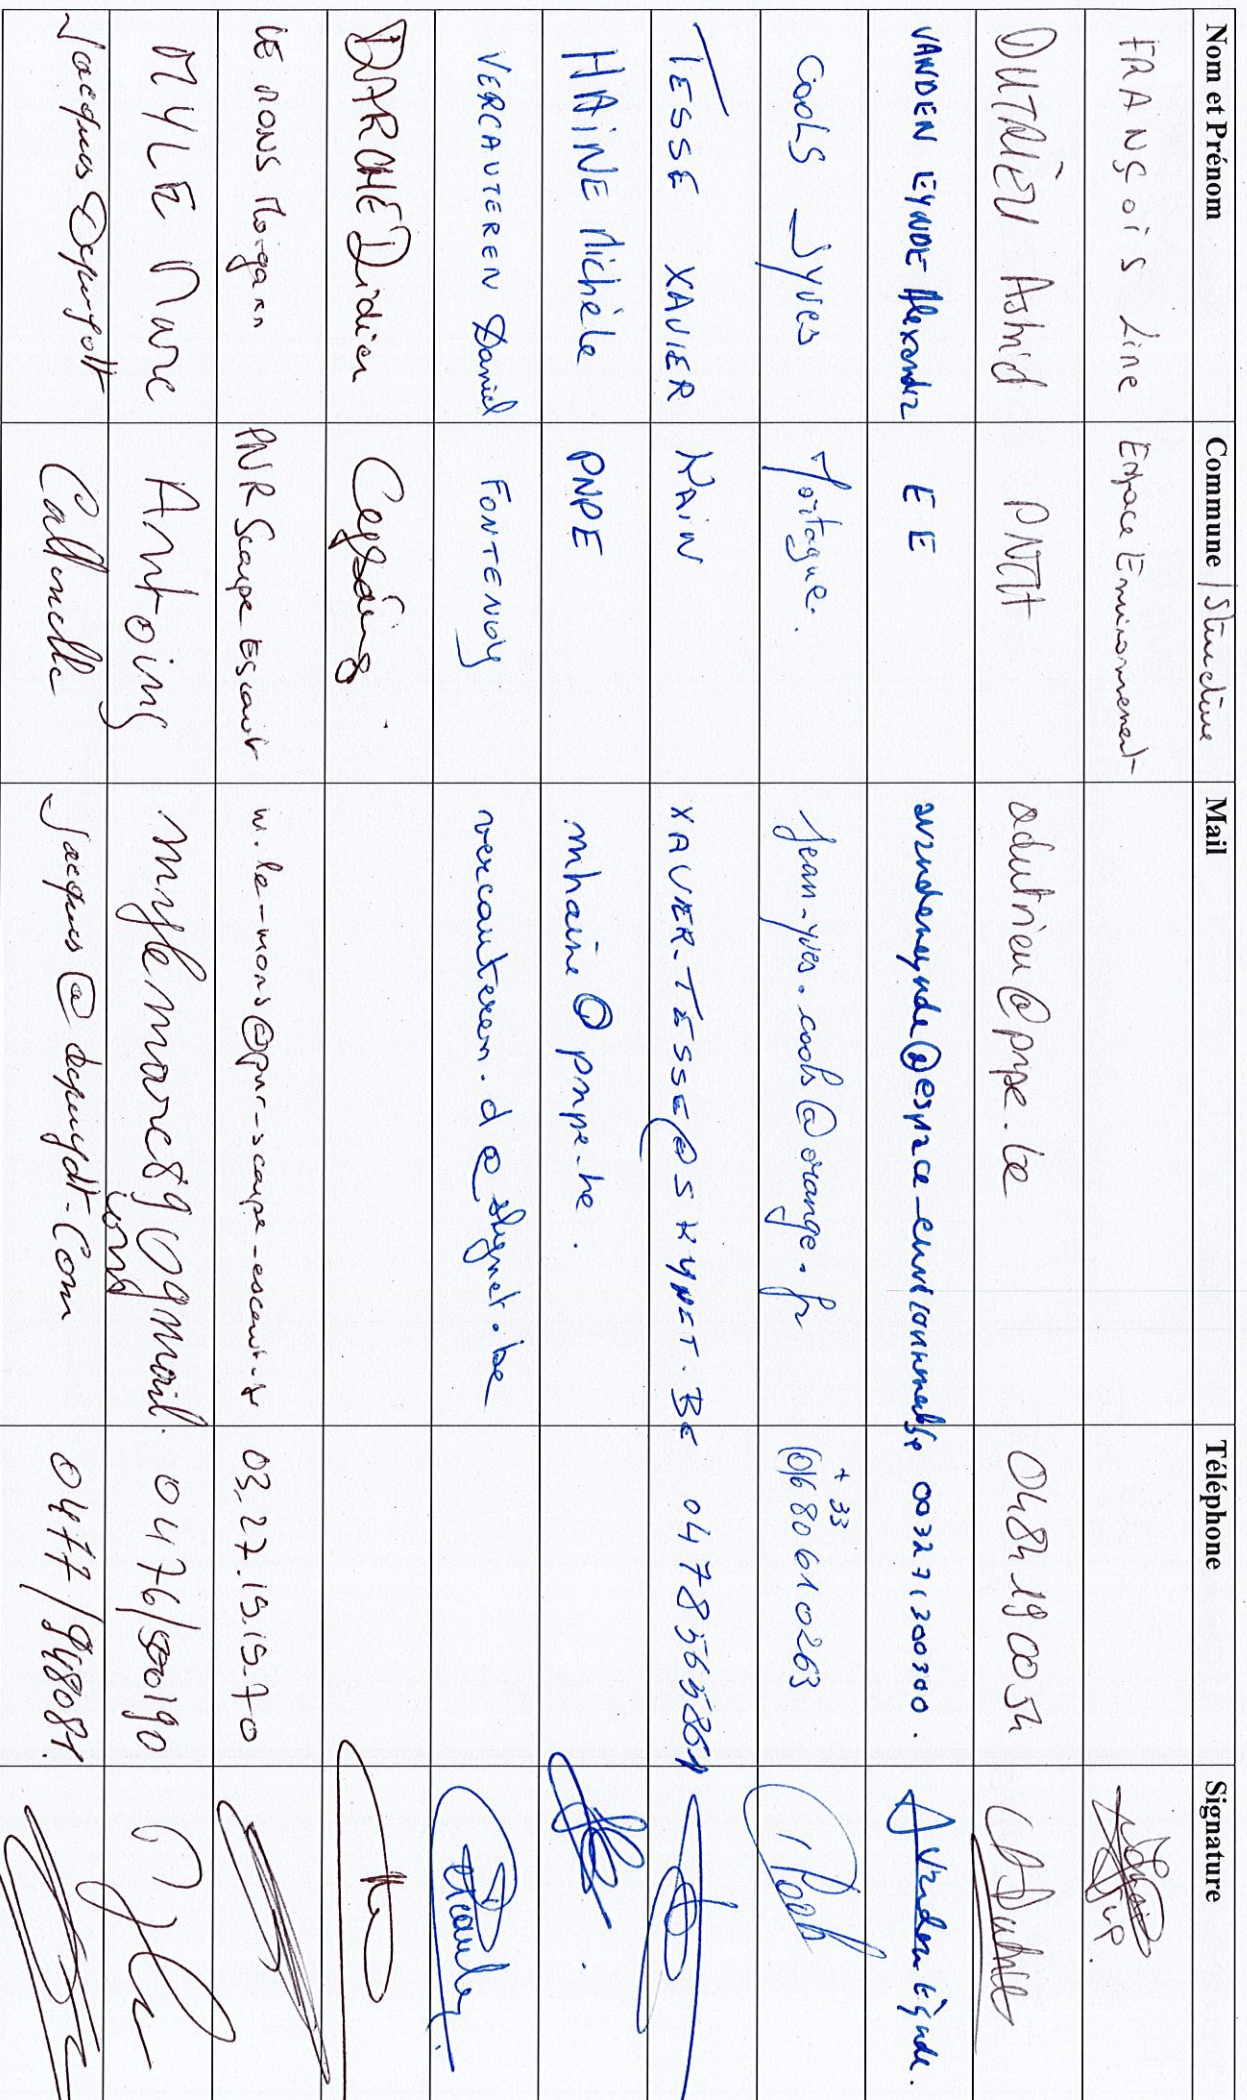 Nom et Prénom Commune / Structure Mail Téléphone Signature
FRANÇOIS Line Espace Environnement
DUTRIEU Astrid PNTH adutrieu@pnpe.be 0484 19 00 54
VANDEN EYNDE Alexandre E E avandeneynde@espace-environnement.be 003271300300. A Vanden Eynde.
COOLS Jyves Mortagne. jean-yves.cools@orange.fr +33 (0)680610263
TESSE XAVIER NAIN XAVIER.TESSE@SKYNET.BE 0478565861
HAINE Michèle PNPE mhaine@pnpe.be.
VERCAUTEREN Daniel FONTENOY vercauteren.d@skynet.be
DARCHE Didier
LE MONS Morgan PNR Scarpe Escaut m.le-mons@pnr-scarpe-escaut.fr 03.27.19.19.70
MYLE Marc Antoing mylemarc89@gmail.com 0476/500190
Jacques Depuydt Callenelle Jacques@depuydt.com 0477/948081.